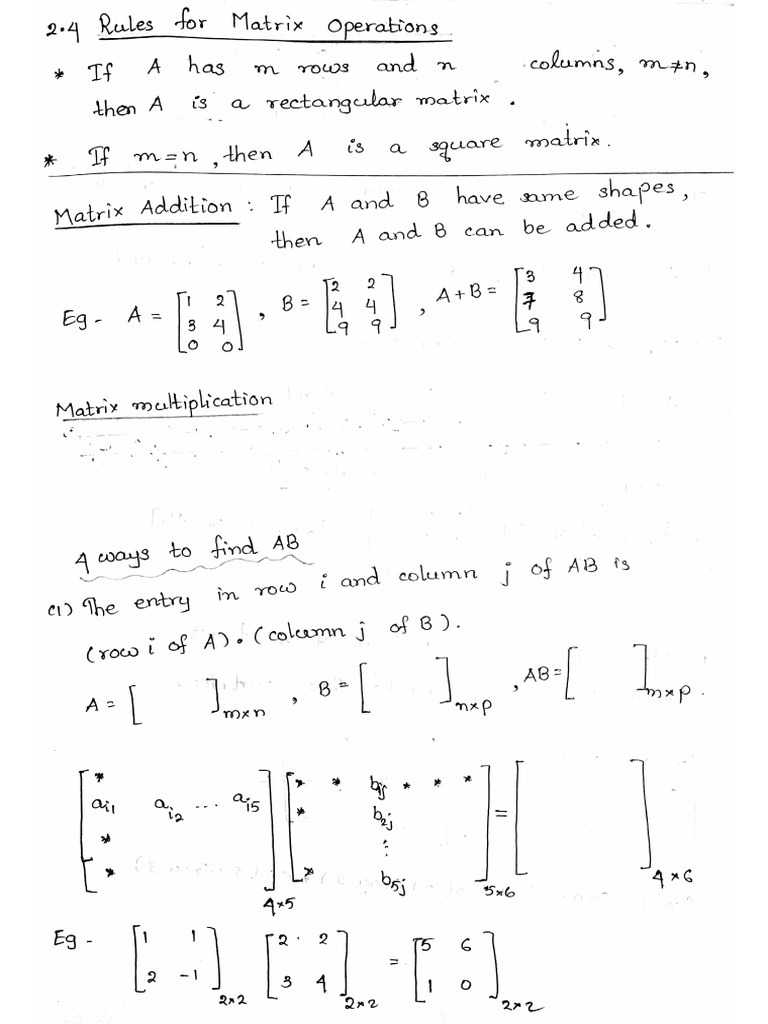 2.4 Rules for Matrix Operations
* If A has m rows and n columns, m≠n,
then A is a rectangular matrix.
* If m=n, then A is a square matrix.
Matrix Addition : If A and B have same shapes,
then A and B can be added.
Eg- A = [1 2; 3 4; 0 0], B = [2 2; 4 4; 9 9], A+B = [3 4; 7 8; 9 9]
Matrix multiplication
4 ways to find AB
(1) The entry in row i and column j of AB is
(row i of A) • (column j of B).
A = [ ]m×n, B = [ ]n×p, AB = [ ]m×p.
[*; ai1 ai2 ... ai5; *; *]4×5 [* * b1j * * *; * b2j; ⋮; * b5j]5×6 = [ ]4×6
Eg- [1 1; 2 -1]2×2 [2 2; 3 4]2×2 = [5 6; 1 0]2×2